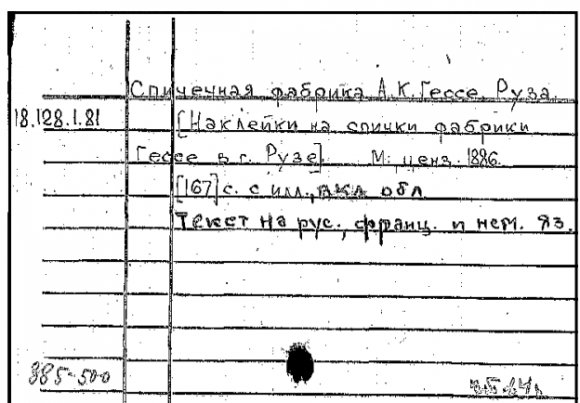 Спичечная фабрика А.К. Гессе. Руза
18.128.1.81 [Наклейки на спички фабрики
Гессе в г. Рузе] М. ценз. 1886.
[167] с. с илл., вкл. обл
Текст на рус., франц. и нем. яз.
385-500